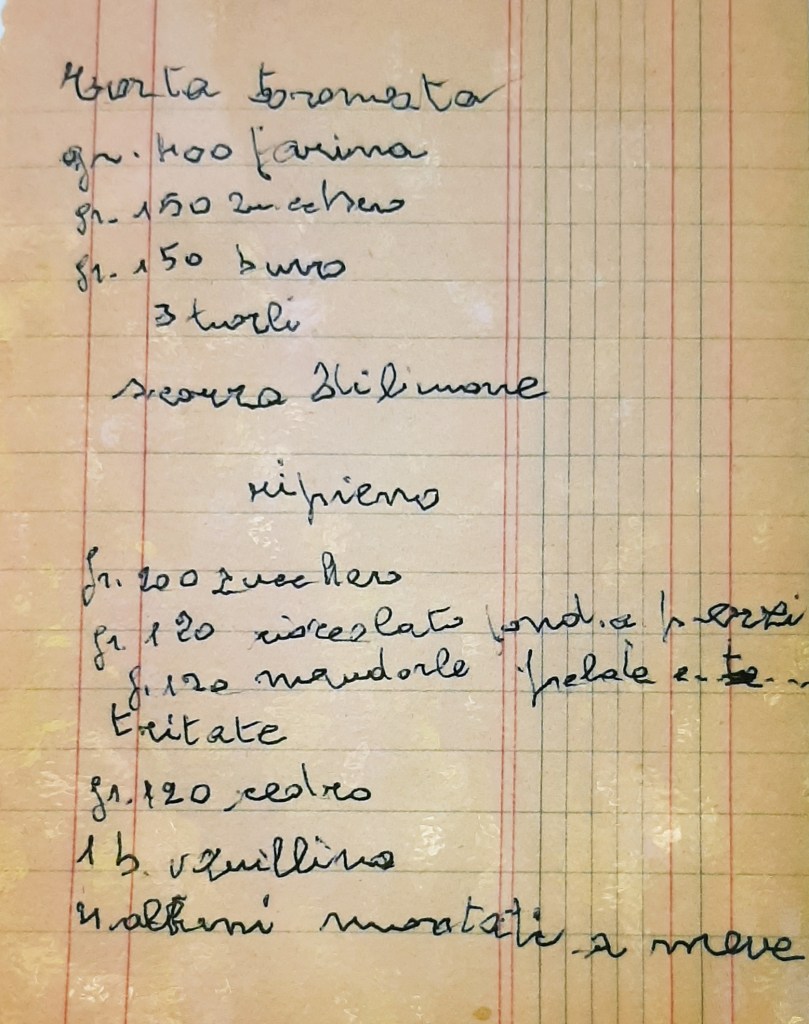 Torta
gr. 400 farina
gr. 150 zucchero
gr. 150 burro
3 tuorli
scorza di limone
ripieno
gr. 200 zucchero
gr. 120 cioccolato fond. a pezzi
g. 120 mandorle pelate e
tritate
gr. 120 cedro
1 b. vanillina
4 albumi montati a neve